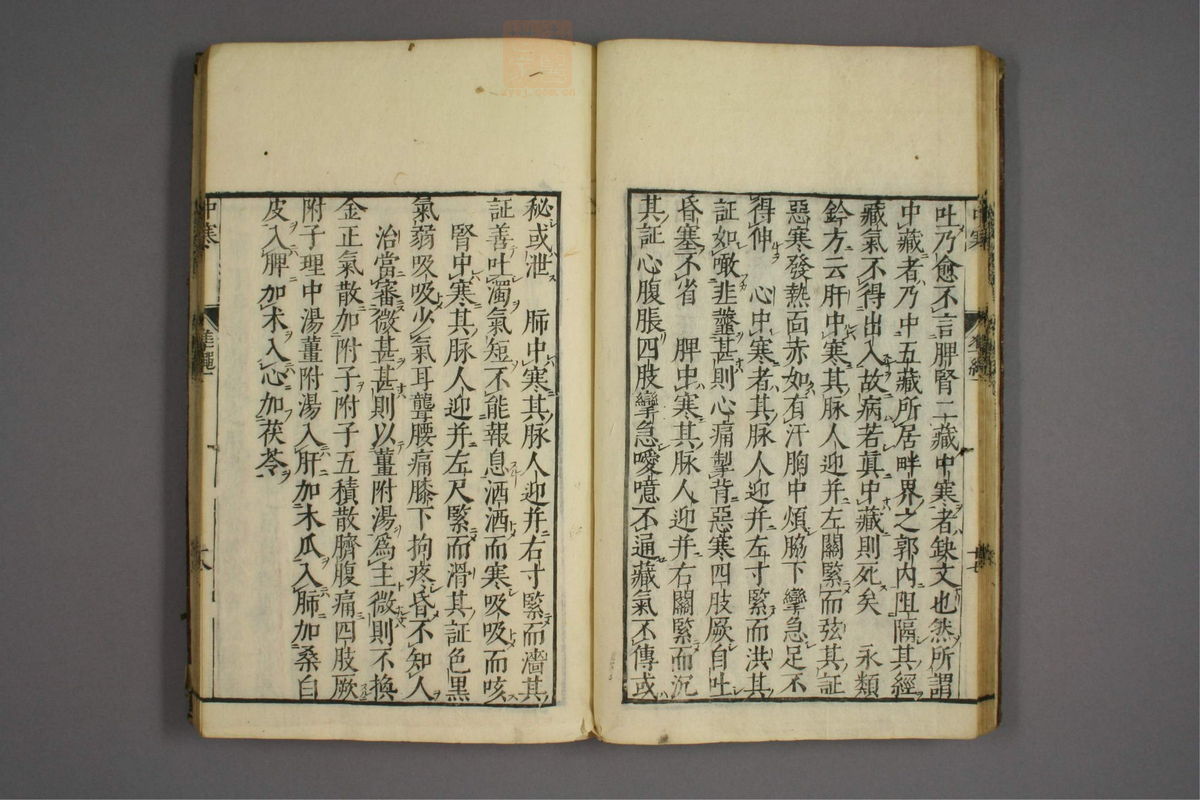 吐乃愈不言脾腎二藏中寒者缺文也然所謂
中藏者乃中五藏所居畔界之郭内阻隔其經
藏氣不得出入故病若眞中藏則死矣 永類
鈐方云肝中寒其脉人迎并左關緊而弦其証
惡寒發熱面赤如有汗胸中煩脇下攣急足不
得伸 心中寒者其脉人迎并左寸緊而洪其
証如噉韭虀甚則心痛掣背惡寒四肢厥自吐
昏塞不省 脾中寒其脉人迎并右關緊而沉
其証心腹脹四肢攣急噯噫不通藏氣不傳或
秘或泄 肺中寒其脉人迎并右寸緊而濇其
証善吐濁氣短不能報息洒洒而寒吸吸而咳
腎中寒其脉人迎并左尺緊而滑其証色黑
氣弱吸吸少氣耳聾腰痛膝下拘疼昏不知人
治當審微甚甚則以薑附湯爲主微則不換
金正氣散加附子附子五積散臍腹痛四肢厥
附子理中湯薑附湯入肝加木瓜入肺加桑白
皮入脾加朮入心加茯苓
中寒